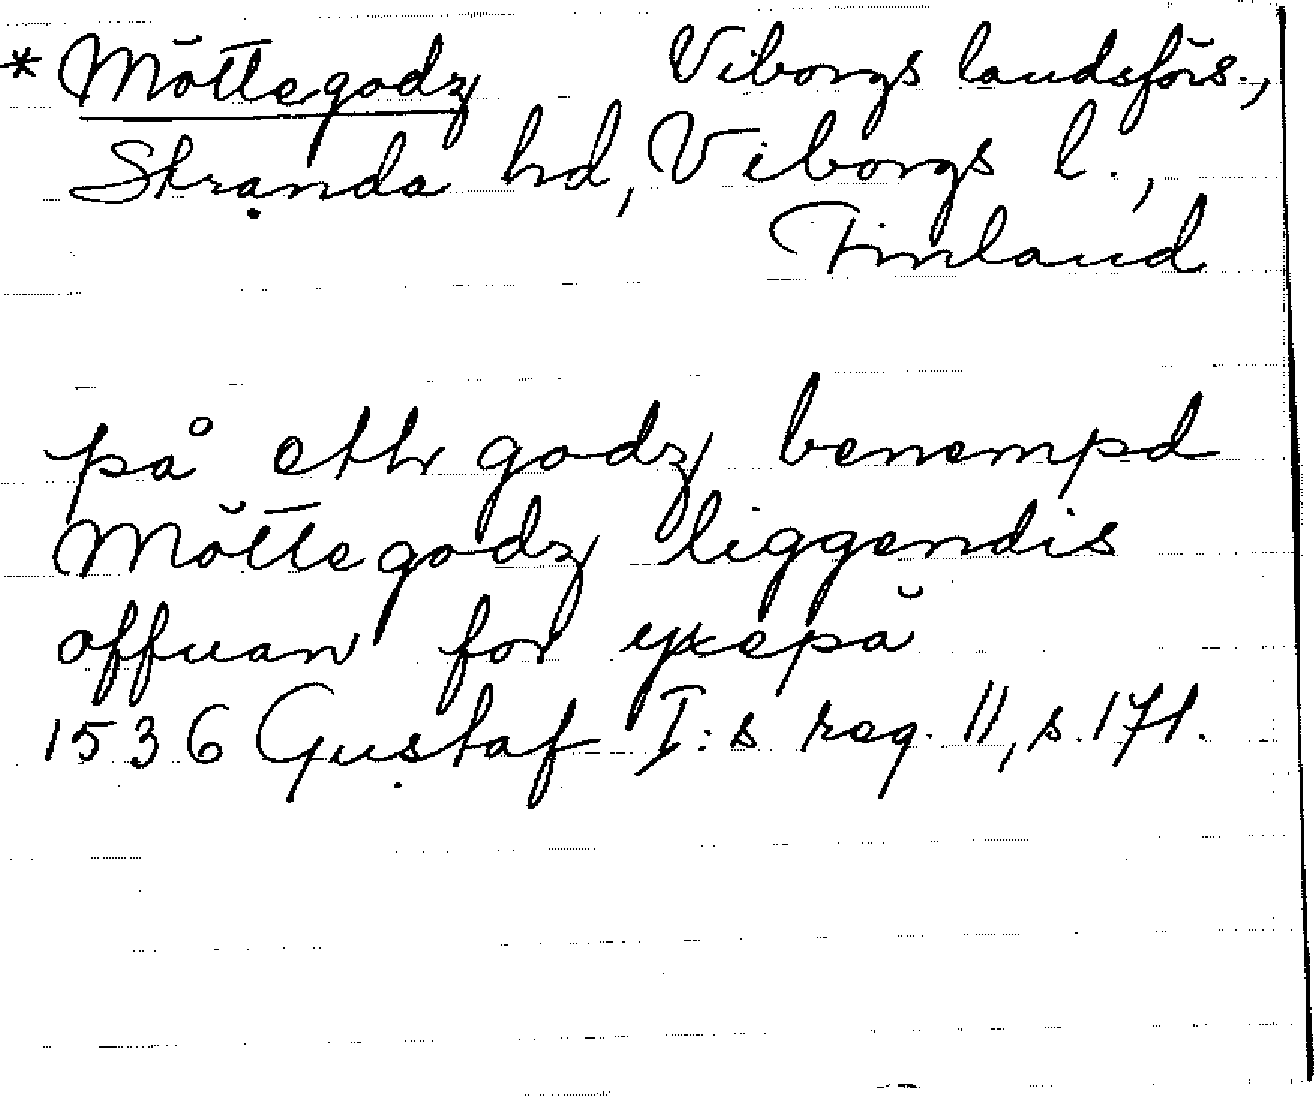 * Möttegodz Viborgs landsförs.,
Stranda hd, Viborgs l.,
Finland
på etth godz benempd
Möttegodz liggendis
offuan for yxepä
1536 Gustaf I:s reg. 11, s. 171.